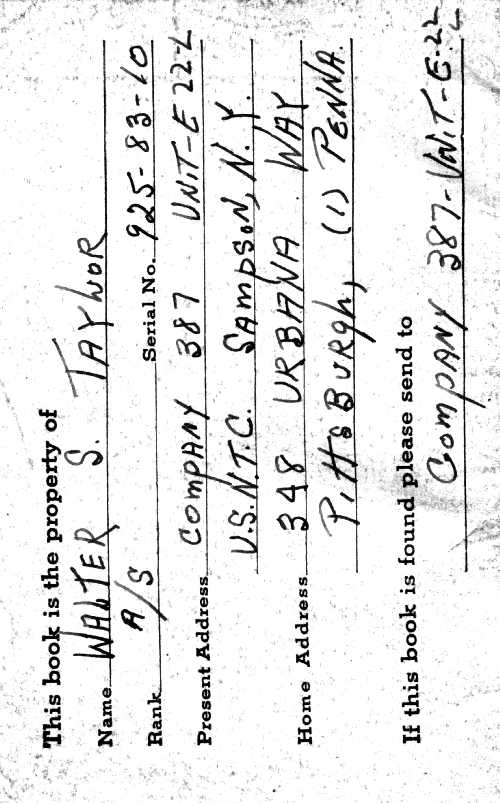 This book is the property of
Name WALTER S. TAYLOR
Rank A/S Serial No. 925-83-10
Present Address COMPANY 387 UNIT-E 22-L
U.S.N.T.C. SAMPSON, N.Y.
Home Address 348 URBANA WAY
PittsBURgh, (1) PENNA.
If this book is found please send to
COMPANY 387-UNIT-E-22 L